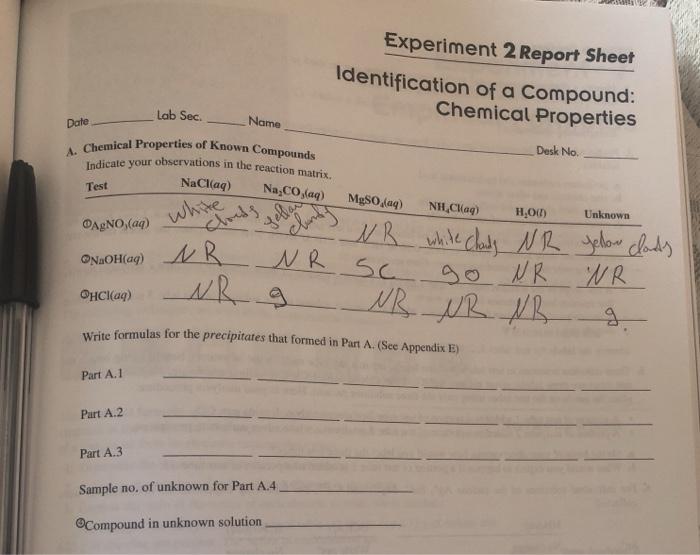 Experiment 2 Report Sheet
Identification of a Compound:
Chemical Properties
Date Lab Sec. Name
Desk No.
A. Chemical Properties of Known Compounds
Indicate your observations in the reaction matrix.
Test NaCl(aq) Na₂CO₃(aq) MgSO₄(aq) NH₄Cl(aq) H₂O(l) Unknown
①AgNO₃(aq) white clouds yellow clouds NR white clouds NR yellow clouds
②NaOH(aq) NR NR SC go NR NR
③HCl(aq) NR g NR NR NR g.
Write formulas for the precipitates that formed in Part A. (See Appendix E)
Part A.1
Part A.2
Part A.3
Sample no. of unknown for Part A.4
④Compound in unknown solution